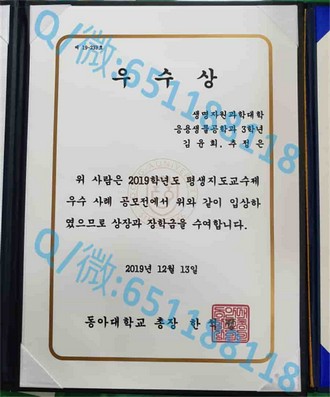 제 19-238호
우 수 상
생명자원과학대학
응용생물공학과 3학년
김 윤 희, 추 정 은
위 사람은 2019학년도 평생지도교수제
우수 사례 공모전에서 위와 같이 입상하
였으므로 상장과 장학금을 수여합니다.
2019년 12월 13일
동아대학교 총장 한
Q/微:651188118
Q/微:651188118